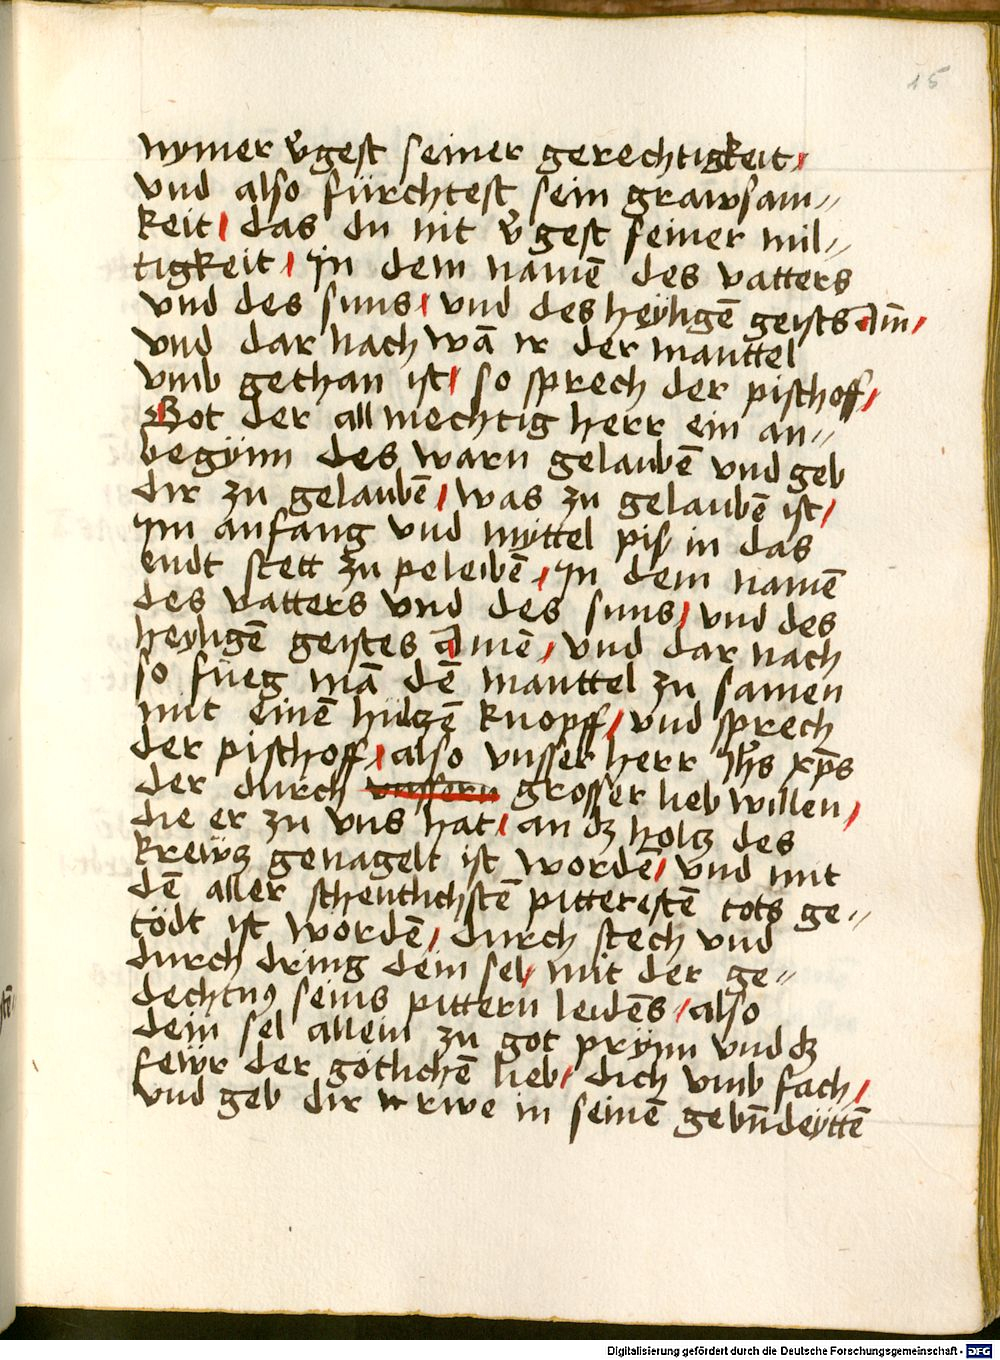 15
nymer v̄gest seiner gerechtigkeit /
vnd also fürchtest sein grawsam//
keit / das du nit v̄gest seiner mil//
tigkeit / Jn dem namē des vatters
vnd des suns / vnd des heyligē geists Am̄ /
vnd dar nach wā ir der manttel
vmb gethan ist / so sprech der pischoff /
Got der allmechtig herr ein an//
begÿnn des warn gelaubē vnd geb
dir zu gelaubē / was zu gelaubē ist /
Jm anfang vnd myttel pis in das
endt stett zu peleibē / Jn dem namē
des vatters vnd des suns / vnd des
heyligē geistes Amē / vnd dar nach
so füeg mā dē manttel zu samen
mit einē hültzē knopff / vnd sprech
der pischoff / also vnsser herr Jhs xp̄s
der durch vnssern grosser lieb willen /
die er zu vns hat / an dz holtz des
krewtz genagelt ist wordē / vnd mit
dē aller scheutlichstē pitterestē tots ge//
tödt ist wordē / durch stech vnd
durch dring dein sel / mit der ge//
dechtnus seins pittern leidēs / also
dein sel allein zu got prÿnn vnd dz
fewr der götlichē lieb / dich vmb fach /
vnd geb dir rwe in seinē gebn̄deÿttē
Digitalisierung gefördert durch die Deutsche Forschungsgemeinschaft - DFG